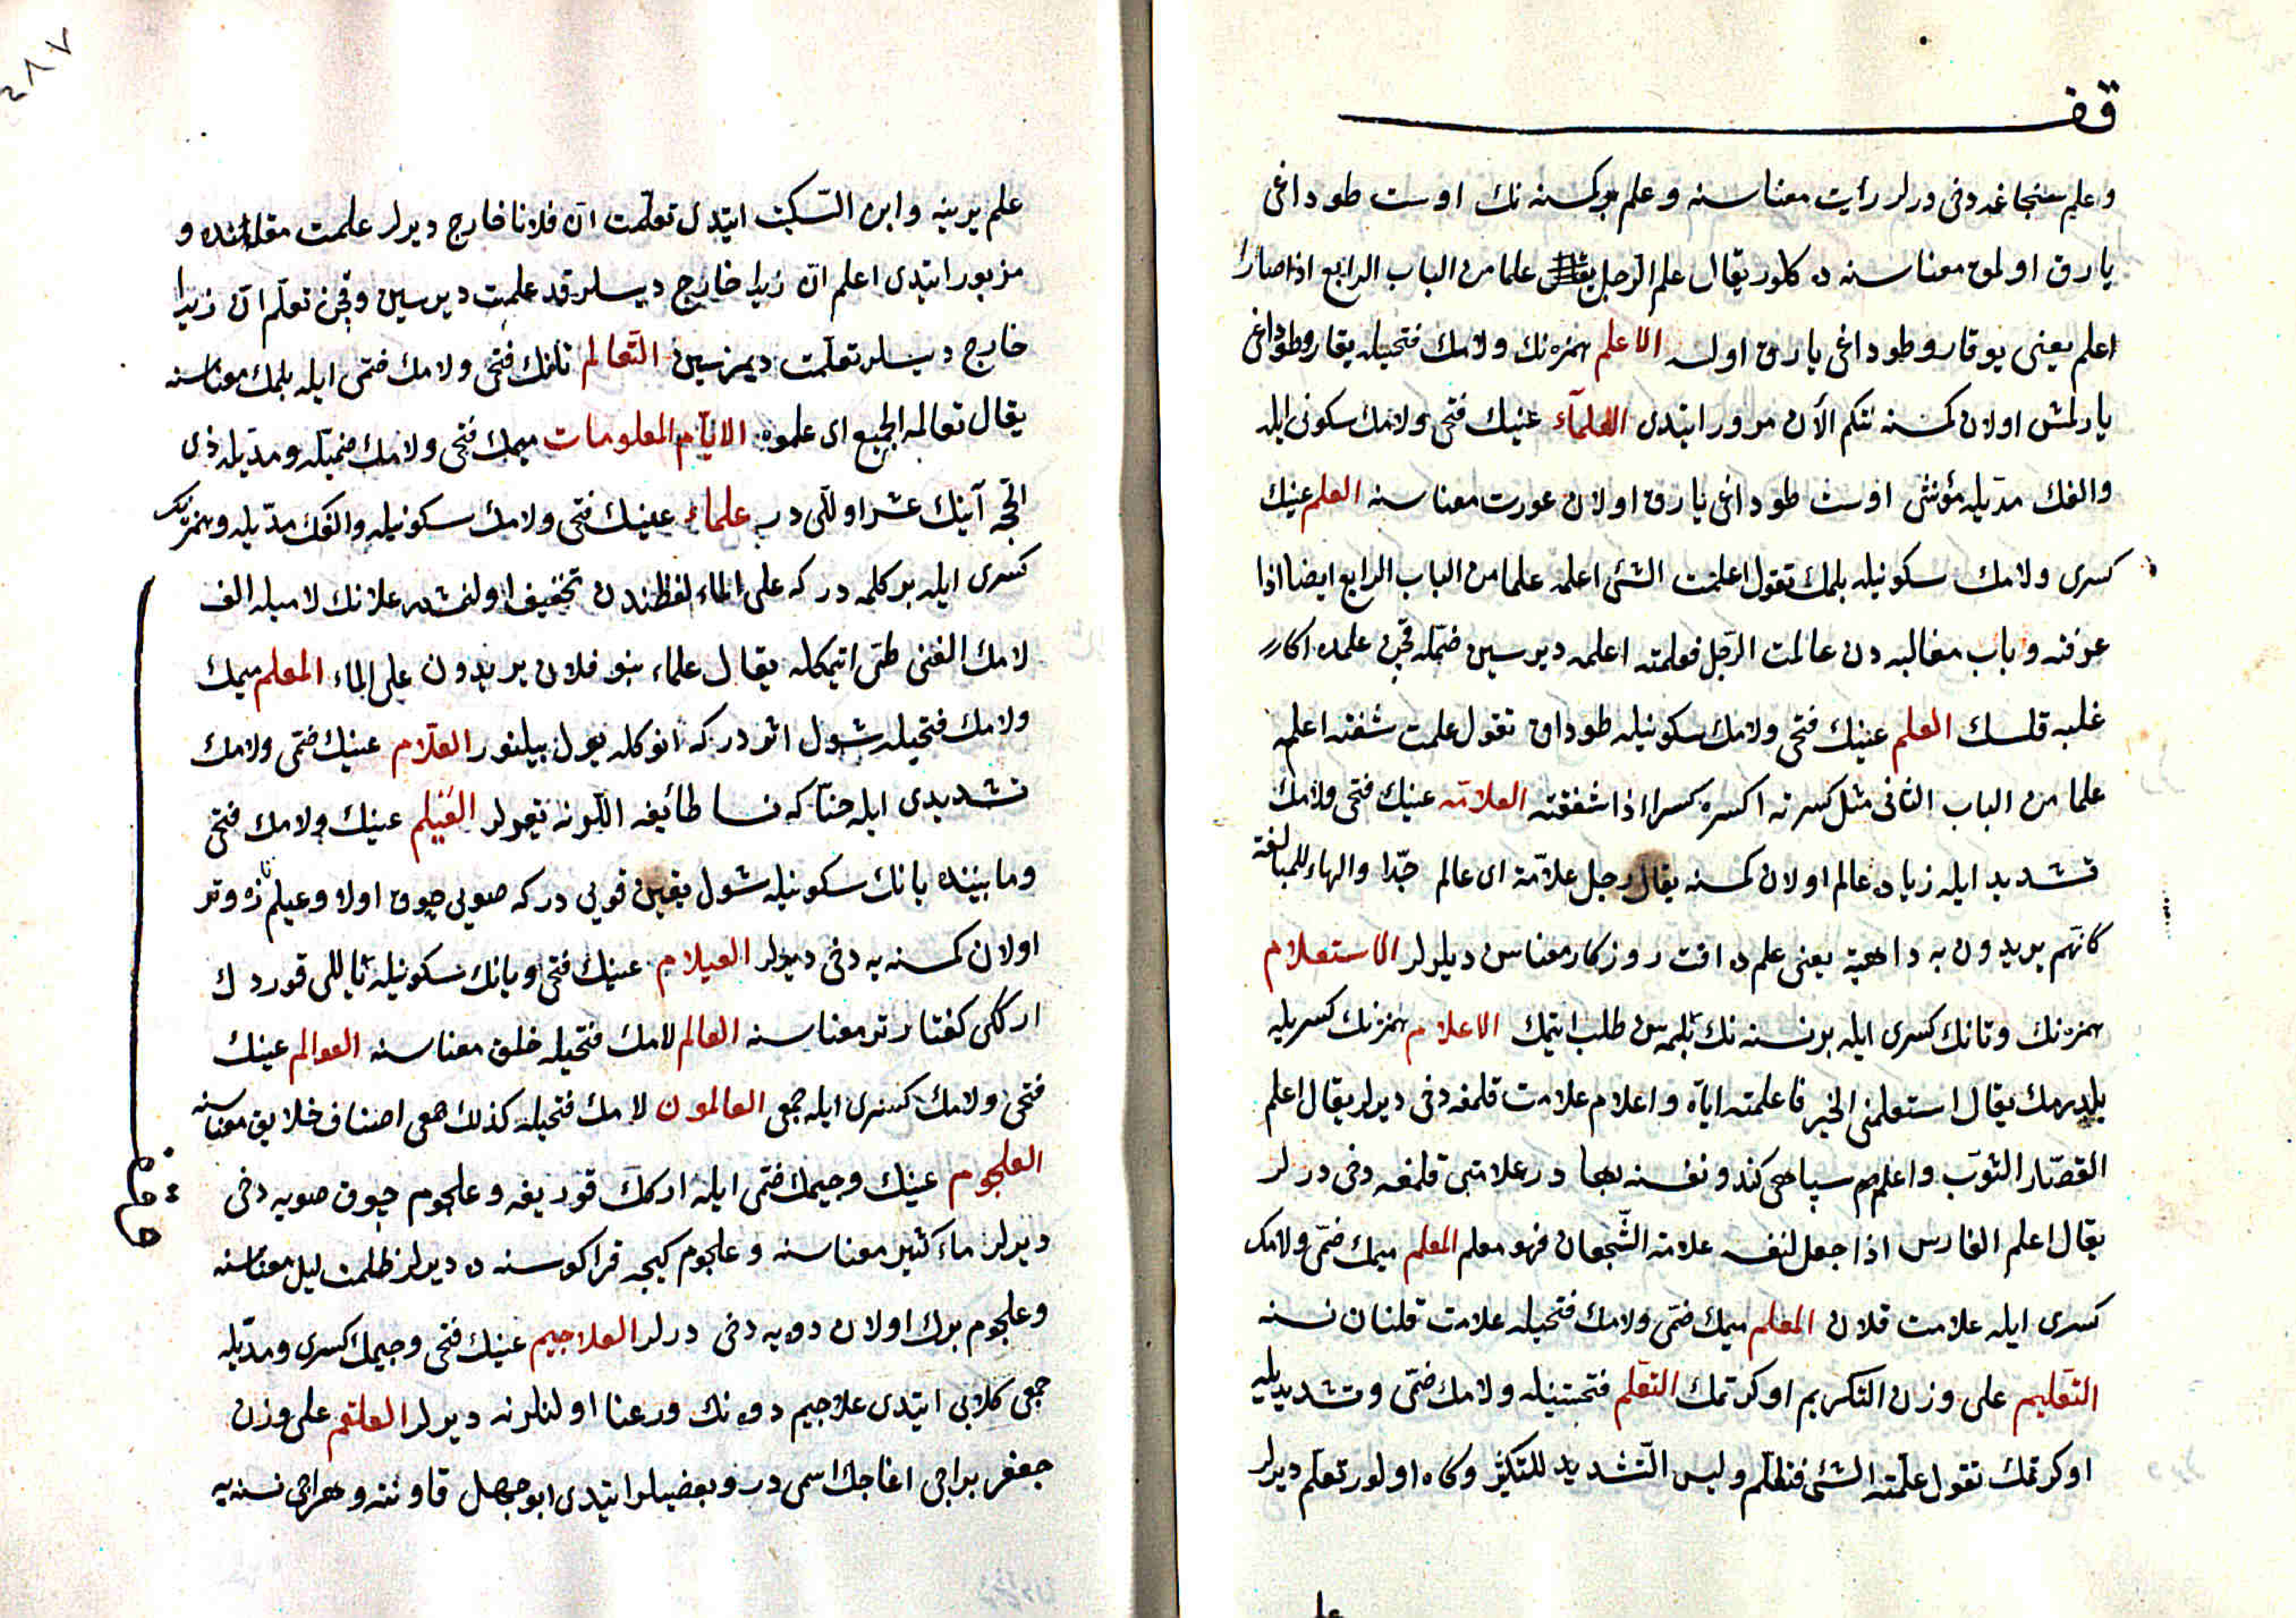 قف
وعلم سنجاغه دخى درلر رأيت معناسنه وعلم بر كسنه نك اوست طوداغى
يارق اولمق معناسنه ده كلور يقال علم الرجل علما من الباب الرابع اذا صار
اعلم يعنى يوقارو طوداغى يارق اولسه الاعلم همزه نك ولامك فتحيله يقارو طوداغى
يارلمش اولان كمسنه نتكم الآن مرور ايتدى العلماء عينك فتحى ولامك سكونى ايله
والفك مديله مؤنثى اوست طوداغى يارق اولان عورت معناسنه العلم عينك
كسرى ولامك سكونيله بلمك تقول اعلمت الشئ اعلمه علما من الباب الرابع ايضا اذا
عرفته وباب مغالبه دن عالمت الرجل فعلمته اعلمه ديرسين ضمله قچن علمده اكا
غلبه قلسك العلم عينك فتحى ولامك سكونيله طوداق تقول علمت شفته اعلمه
علما من الباب الثانى مثل كسرته اكسره كسرا اذا شققته العلامه عينك فتحى ولامك
تشديد ايله زياده عالم اولان كمسنه يقال رجل علامة اى عالم جدا والهاء للمبالغة
كانهم يريدون به داهية يعنى علمده افت روزكار معناسن ديلرلر الاستعلام
همزه نك وتانك كسرى ايله بر نسنه نك بلمسن طلب ايتمك الاعلام همزه نك كسريله
بلدرمك يقال استعلمنى الخبر فاعلمته اياه واعلام علامت قلمغه دخى ديرلر يقال اعلم
القصار الثوب واعلم سپاهى كندو نفسنه بهادرعلامتى قلمغه دخى درلر
يقال اعلم الفارس اذا جعل لنفسه علامة الشجعان فهو معلم المعلم ميمك ضمى ولامك
كسرى ايله علامت قلان المعلم ميمك ضمى ولامك فتحيله علامت قلنان نسنه
التعليم على وزن التكريم اوكرتمك التعلم فتحتينله ولامك ضمى وتشديديله
اوكرنمك تقول علمته الشئ فتعلم وليس التشديد للتكثير وكاه اولور تعلم ديرلر
علم
٢٨٧
علم يرينه وابن السكيت ايتدى تعلمت ان فلانا خارج ديرلر علمت مقامنده و
مزبور ايتدى اعلم ان زيدا خارج ديسلر قد علمت ديرسين وقچن تعلم ان زيدا
خارج ديسلر تعلمت ديمزسين التعالم تانك فتحى ولامك ضمى ايله بلمك معناسنه
يقال تعالمه الجميع اى علموه الايام المعلومات ميمك فتحى ولامك ضميله ومديله ذى
الحجه آينك عشر اوللى در علماء عينك فتحى ولامك سكونيله والفك مديله وهمزه نك
كسرى ايله بر كلمه در كه على الماء لفظندن تخفيف اولنمشدر علانك لاميله الف
لامك الفنى طى اتمكله يقال علماء بنو فلان يريدون على الماء المعلم ميمك
ولامك فتحيله شول اثردر كه انوكله يول بيلنور العلام عينك ضمى ولامك
تشديدى ايله حنا كه نسا طائفه اللرنه يقرلر العيلم عينك ولامك فتحى
وما بينده يانك سكونيله شول يقين قويى در كه صويى چوق اولا وعيلم تازه وتر
اولان كمسنه يه دخى ديرلر العيلام عينك فتحى ويانك سكونيله ثاللى قوردك
اركگى كفتار نر معناسنه العالم لامك فتحيله خلق معناسنه العوالم عينك
فتحى ولامك كسرى ايله جمعى العالمون لامك فتحيله كذلك جمعى اصناف خلايق معناسنه
العلجوم عينك وجيمك ضمى ايله اركك قوربغه وعلجوم چوق صويه دخى
ديرلر ماء كثير معناسنه وعلجوم كيجه قراكوسنه ده ديرلر ظلمت ليل معناسنه
وعلجوم برك اولان دوه يه دخى درلر العلاجيم عينك فتحى وجيمك كسرى ومديله
جمعى كلابى ايتدى علاجيم دوه نك ورعنا اولنلرنه ديرلر العلقم على وزن
جعفر بر اجى اغاجك اسمى در وبعضيلر ايتدى ابو جهل قاوننه وهر اجى نسنه يه